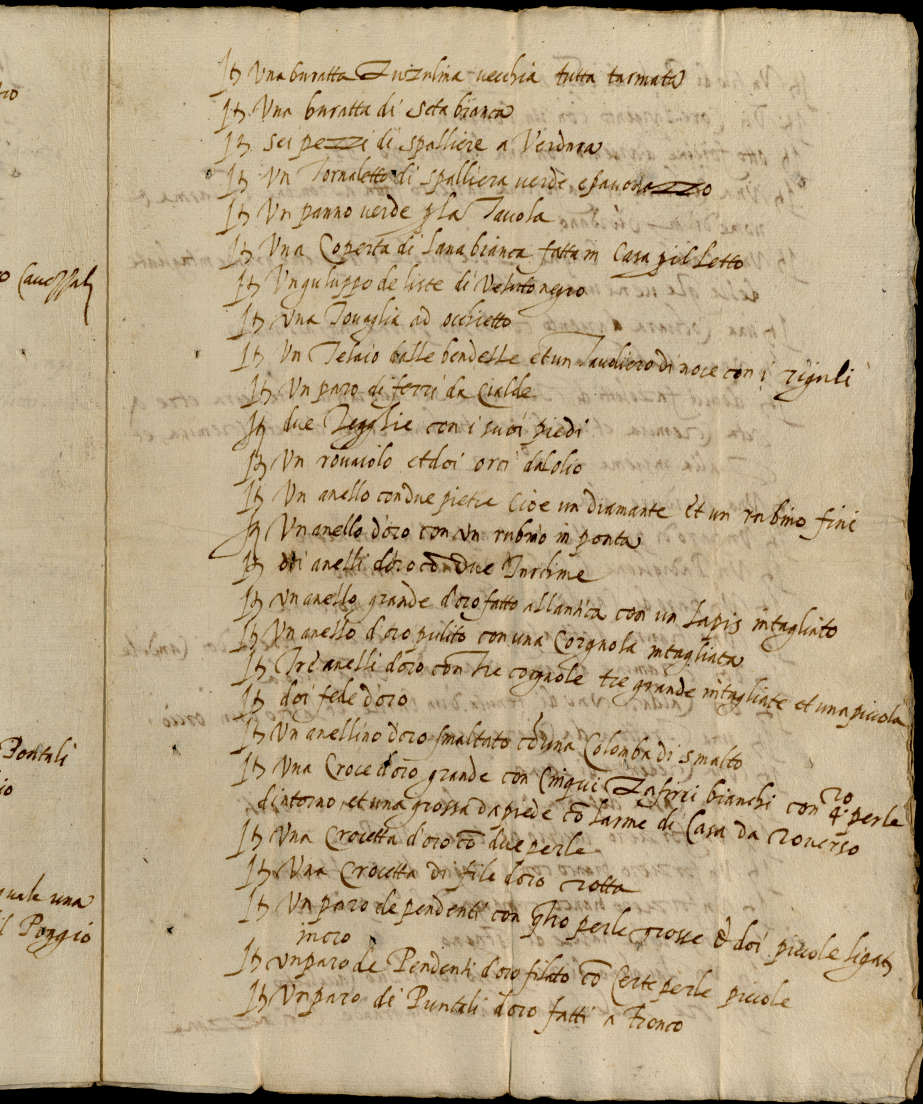 ro
ro Cavezzali
Pontali
io
quale una
il Poggio
It Una buratta Zuzulina vecchia tutta tarmata
It Una buratta di seta bianca
It sei pezzi di spalliere a Verdura
It Un Tornaletto di spalliera verde e pavonazzo
It Un panno verde p la Tavola
It Una Coperta di lana bianca fatta in Casa p il Letto
It Un guluppo de liste di Veluto negro
It una Tovaglia ad occhietto
It Un Telaio dalle bendelle et un Tavoliero di noce con i ziguli
It Un paro di ferri da Cialde
It due Tegghie con i suoi piedi
It Un rovaiolo et doi orci dalolio
It Un anello con due pietre cioe un diamante et un rubino fini
It Un anello d'oro con un rubino in ponta
It doi anelli d'oro con due Turchine
It un anello grande d'oro fatto all'antica con un Lapis intagliato
It Un anello d'oro pulito con una Corgnola intagliata
It Tre anelli d'oro con tre corgnole tre grande intagliate et una piccola
It doi fede d'oro
It Un anellino d'oro smaltato cō una Colomba di smalto
It Una Croce d'oro grande con Cinqui Zafirri bianchi con 4ro perle
d'intorno, et una grossa da piede cō l'arme di Casa da roverso
It Una Crocetta d'oro cō due perle
It Una Crocetta di file d'oro rotta
It Un paro de pendenti con qtro perle grosse & doi piccole ligate
in oro
It un paro de Pendenti d'oro filato cō Certe perle piccole
It Un paro di Puntali d'oro fatti a Tronco